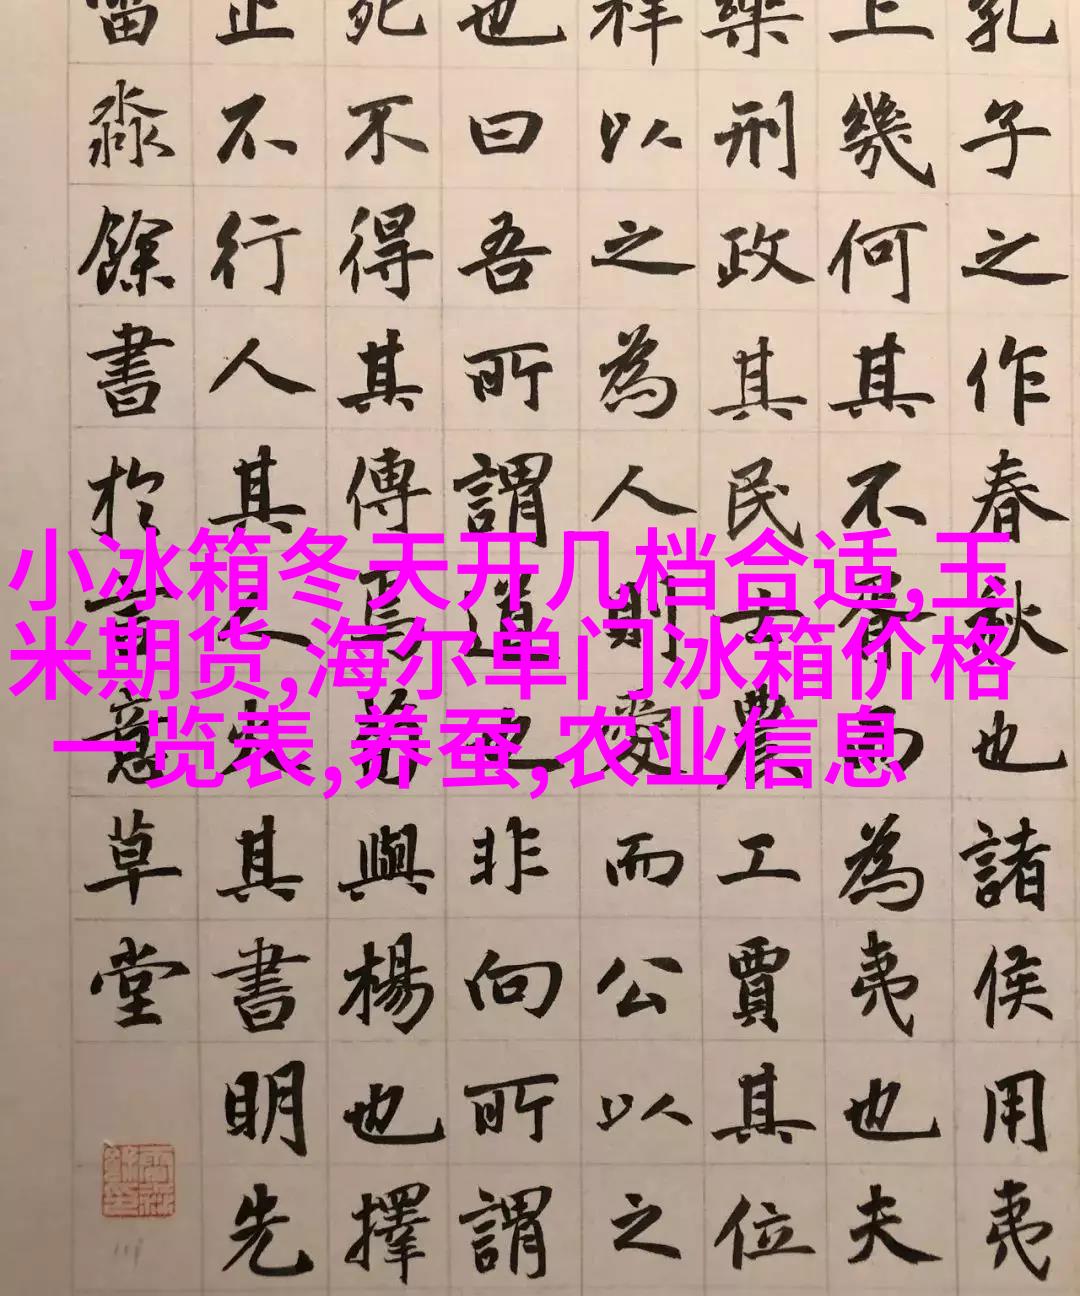 小冰箱冬天开几档合适,玉
米期货,海尔单门冰箱价格
一览表,养蚕,农业信息
孔子之作春秋也諸侯用夷
上幾何其不胥而為夷也夫
樂刑政其民士農工賈其位
祥以之為人則愛而公以之
也曰吾所謂道也非向所謂
死不得其傳焉荀與楊也擇
止不行人其人火其書明先
淼餘書於意草堂